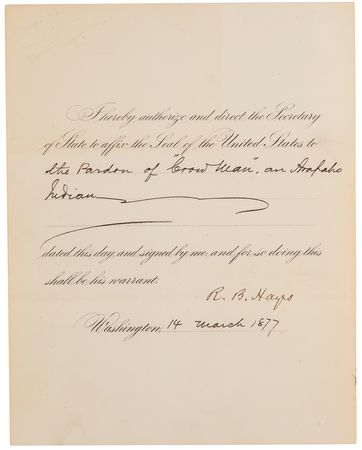 I hereby authorize and direct the Secretary
of State to affix the Seal of the United States to
the Pardon of "Crow Neck", an Arapaho
Indian
dated this day, and signed by me; and for so doing this
shall be his warrant.
R. B. Hayes
Washington, 14 March 1877.